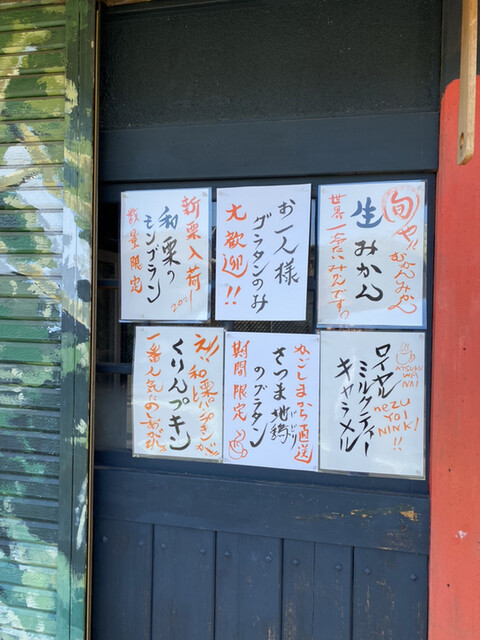 新栗入荷
2021
和栗の
モンブラン
数量限定
お一人様
グラタンのみ
大歓迎!!
旬や!!
みかん
生みかん
世界一
え!!和栗と
くりんプキン
一番人気なの
かごしまから直送
さつま地鶏
じどり
のグラタン
期間限定
ロイヤル
ミルクティー
キャラメル
ATSUKU
WA
NAI
nEZU
YOI
NINKI
!!